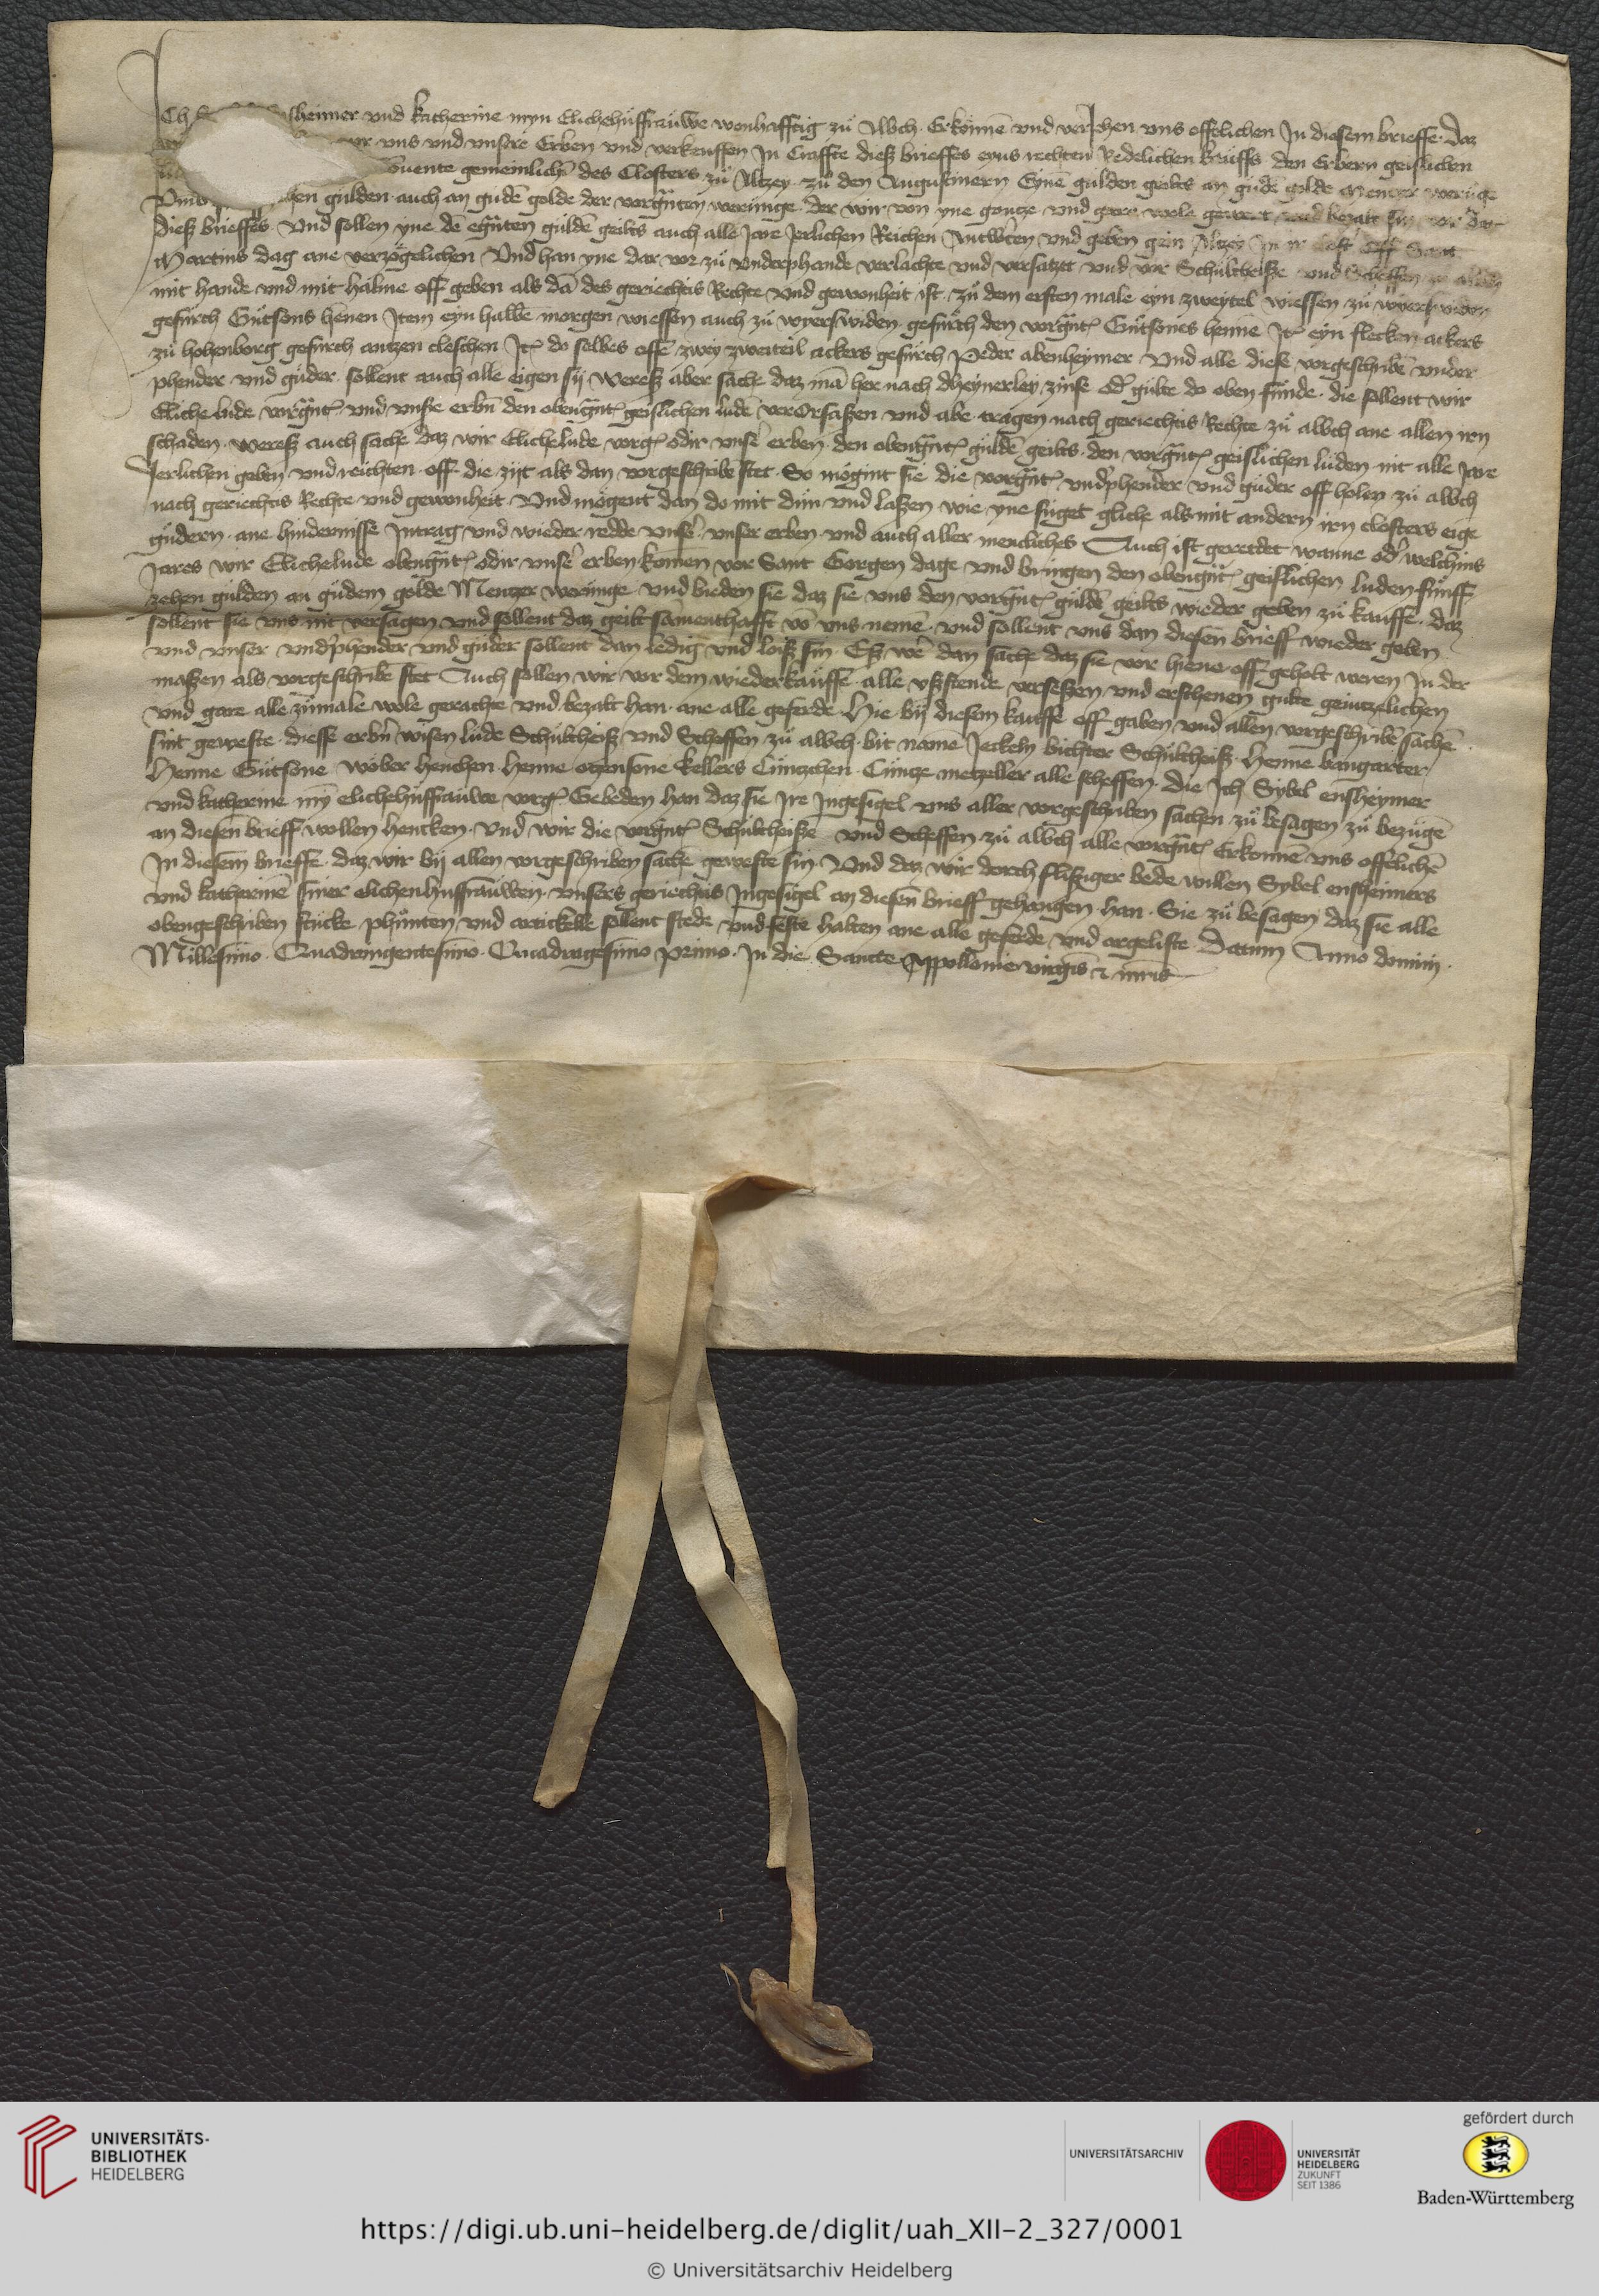 ICh heimer vnd katherine myn Elichehußfrauwe wonhafftig zu Albch Erkennē vnd veriehen vns offelichen In diesem brieffe daz
vor vns vnd vnsere Erben vnd verkeuffen In Craffte dieß brieffes eyns rechten Redelichen kauffs den Erbern geistlichen
Conuente gemeinlichē des Closters zu Altzey zu den Augustinern Eynē gulden geltz an gudē golde Mentzer werunge
Vmb gulden auch an gudē golde der vorgnten werunge der wir von yne gantze vnd gare wole gewert vnd bezalt sin vor dat
dieß brieffes Vnd sollen yne dē egnten guldē geltz auch alle Jare Jerlichen Reichen Antwrten vnd geben gein Altzey In ir off Sant
Martins dag ane verzogelichen Vnd han yne dar vor zu vnderphande verlachte vnd versatzet vnd vor Schultheiße vnd Scheffen zu albch
mit hande vnd mit halme off geben als dā des geriechts Rechte vnd gewonheit ist zu dem ersten male eyn zweytel wiessen zu wyerswiden
gefurch Gutsons henen Item eyn halbe morgen wiessen auch zu wyerswiden gefurch den vorgnt Gutsones henne It eyn flecken ackers
zu hohenborg gefurch antzen cleschen It do selbes offe zwey zweiteil ackers gefurch Peder abenheymer Vnd alle diese vorgeschribē vnder
phender vnd guder sollent auch alle eigen sij wereß aber sache daz mā her nach dheynerley zinse odr gulte do oben funde die sollent wir
Eliche lude vorgnt vnd vnse erbn den obengnt geistlichen ludē verorsaßen vnd abe tragen nach geriechts Rechte zu albch ane allen irn
schaden wereß auch sache daz wir Elichelude vorg odir vnser erben den obengnt guldē geltz den vorgnt geistlichen luden nit alle Jare
Jerlichen geben vnd reichten off die zijt als dan vorgeschribē stet So mogint sie die vorgnt vndphender vnd guder off holen zu albch
nach geriechts Rechte vnd gewonheit Vnd mogent dan do mit dun vnd laßen wie yne fuget gliche als mit andern irn closters eige
gudern ane hindernisse Intrag vnd wieder redde vnser vnser erben vnd auch aller mencliches Auch ist geretdet wanne odr welchins
Jares wir Elichelude obengnt odir vnser erben komen vor Sant Gorgen dage vnd bringen den obengnt geistlichen luden funff
zehen gulden an gudem golde Mentzer werunge vnd bieden sie daz sie vns den vorgnt guldē geltz wieder geben zu kauffe daz
sollent sie vns nit versagen vnd sollent daz gelt samenthafft vō vns nemē vnd sollent vns dan diesen brieff wieder geben
vnd vnser vndphender vnd guder sollent dan ledig vnd loiß sin Eß wē dan sache daz sie vor hiene off geholt weren In der
maßen als vorgeschribē stet Auch sollen wir vor dem wiederkauffe alle vßstende verseßen vnd erschenen gulte geintzelichen
vnd gare alle zumale wole gerachte vnd bezalt han ane alle geferde Hie bij diesem kauffe off gaben vnd allen vorgeschribē sachē
sint geweste diesse erbn wisen lude Schultheiß vnd Scheffen zu albch bit namē Jeckeln bichter Schultheiß Henne bangarter
Henne Gutsone wober henchen henne otzensone kellers Cuntzchen Cuntze metzeller alle scheffen die Ich Sybel ensheymer
vnd katherine my elichehußfrauwe vorg Gebeden han daz sie Ire Ingesigel vns aller vorgeschriben sachen zu besagen zu bezugē
an diesen brieff wollen hencken Vnd wir die vorgnt Schultheiße vnd Scheffen zu albch alle vorgnt Erkennē vns offelichē
In diesem brieffe daz wir bij allen vorgeschriben sachē geweste sin Vnd daz wir dorch flißiger bede willen Sybel ensheimers
vnd katherinē siner elichenhußfrauwen vnsers geriechts Ingesigel an diesen brieff gehangen han Sie zu besagen daz sie alle
obengeschriben stucke phunten vnd artickelle sollent stede vnd feste halten ane alle geferde vnd argeliste Datum Anno domini
Millesimo Quadringentesimo Quadragesimo primo In die Sancte Appollonie virgīs & mrīs
UNIVERSITÄTS-
BIBLIOTHEK
HEIDELBERG
UNIVERSITÄTSARCHIV
UNIVERSITÄT
HEIDELBERG
ZUKUNFT
SEIT 1386
gefördert durch
Baden-Württemberg
https://digi.ub.uni-heidelberg.de/diglit/uah_XII-2_327/0001
© Universitätsarchiv Heidelberg